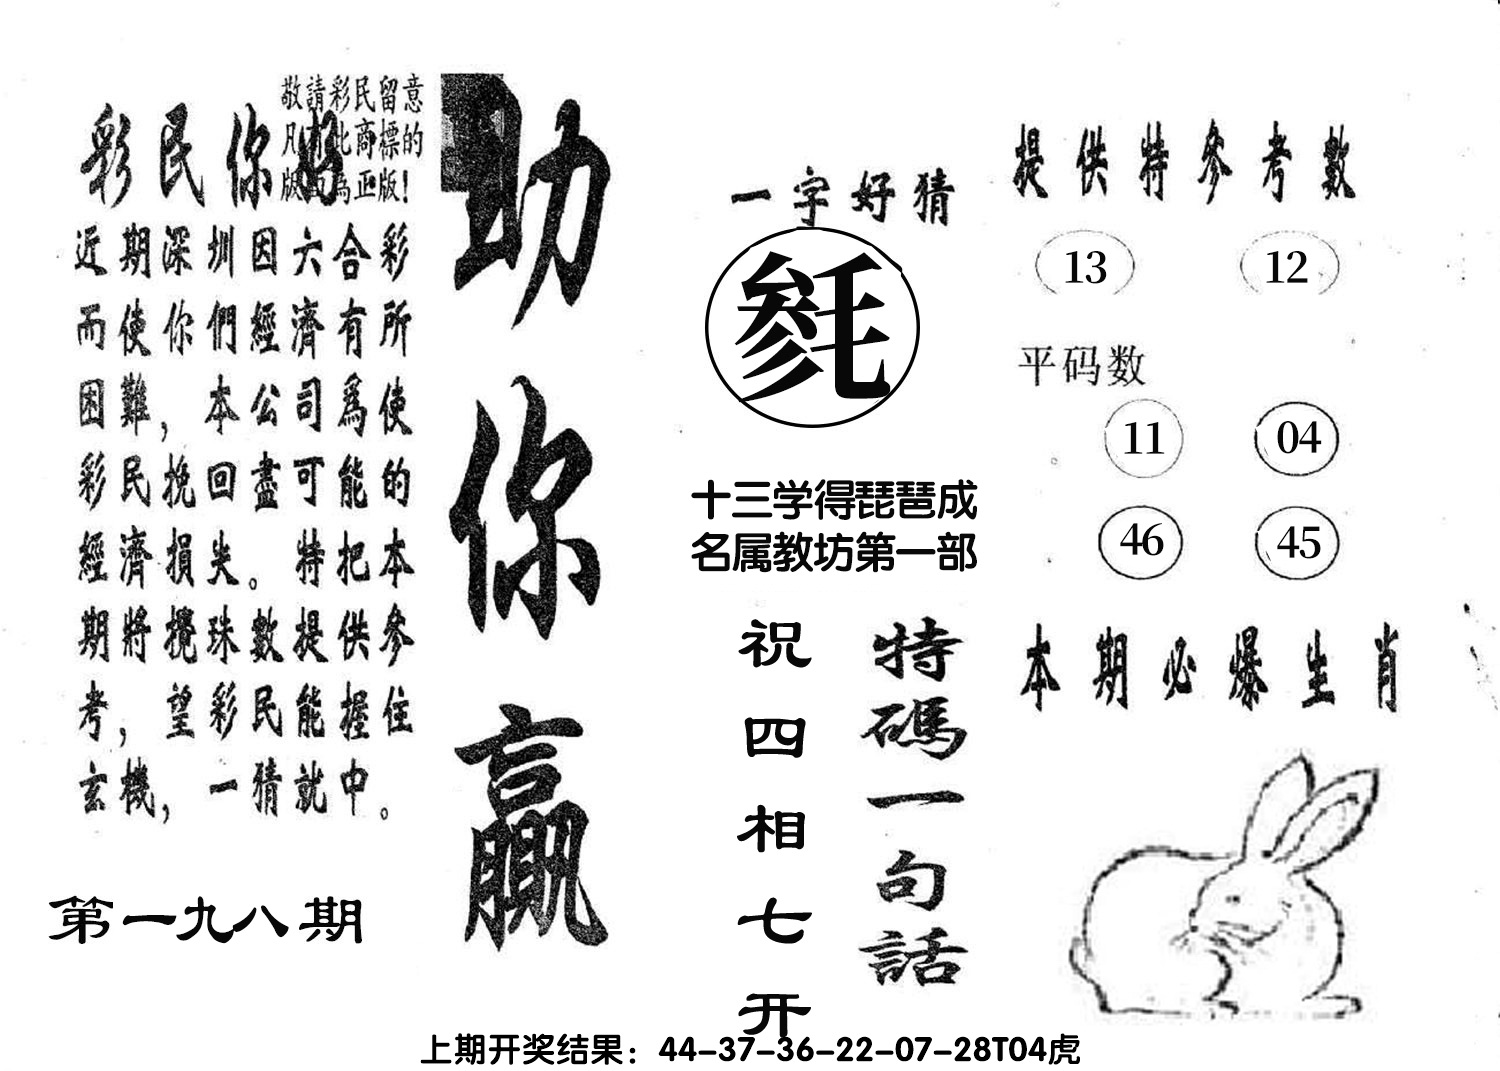 敬請彩民留意
凡有此商標的
版面為正版！
彩民你好
近期深圳因六合彩
而使你們經濟有所
困難，本公司爲使
彩民挽回盡可能的
經濟損失。特把本
期將攪珠數提供參
考，望彩民能握住
玄機，一猜就中。
第一九八期
助你贏
一字好猜
毵
十三学得琵琶成
名属教坊第一部
特碼一句話
祝四相七开
提供特參考數
13 12
平码数
11 04
46 45
本期必爆生肖
上期开奖结果：44-37-36-22-07-28T04虎